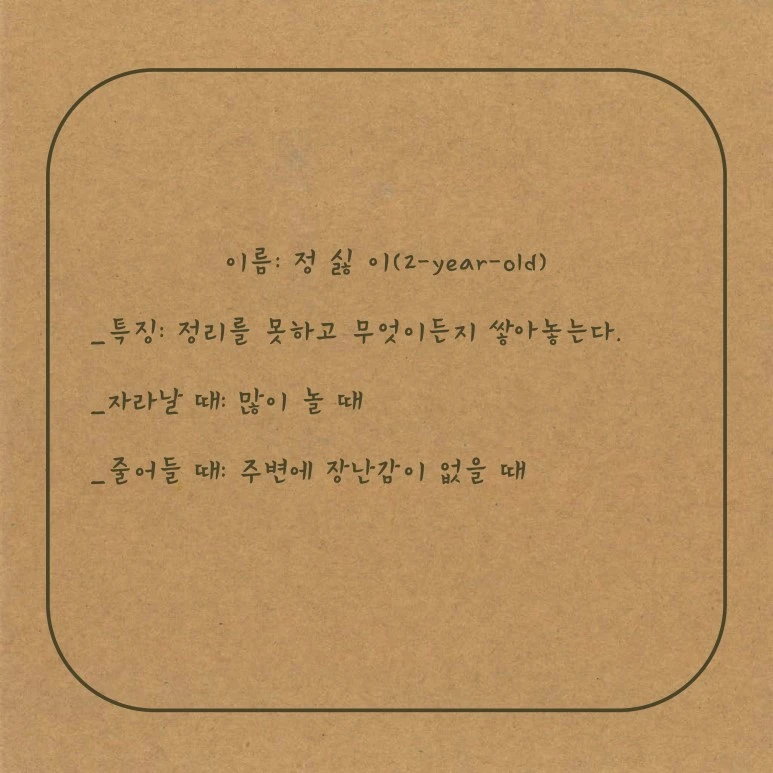 이름: 정 싫 이(2-year-old)
_특징: 정리를 못하고 무엇이든지 쌓아놓는다.
_자라날 때: 많이 놀 때
_줄어들 때: 주변에 장난감이 없을 때